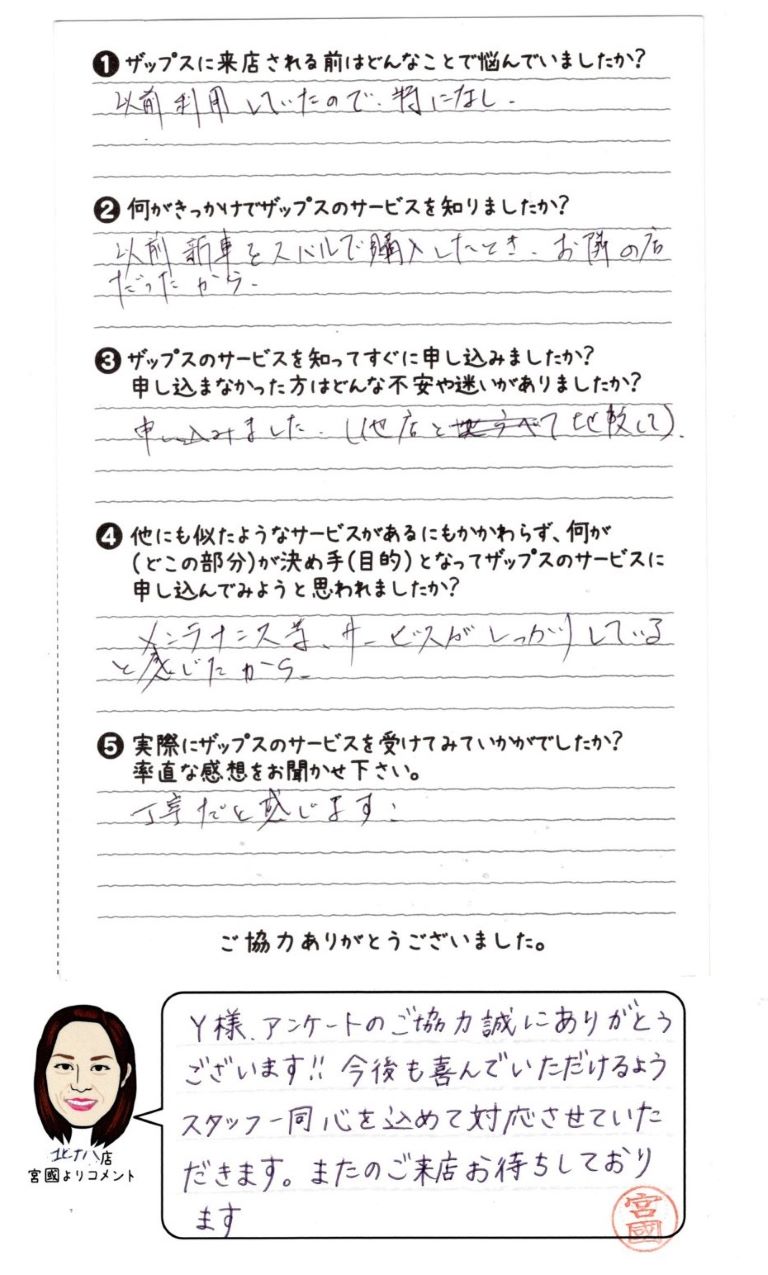 ❶ ザップスに来店される前はどんなことで悩んでいましたか?
以前利用していたので、特になし.
❷ 何がきっかけでザップスのサービスを知りましたか?
以前新車をスバルで購入したとき、お隣の店
だったから.
❸ ザップスのサービスを知ってすぐに申し込みましたか?
申し込まなかった方はどんな不安や迷いがありましたか?
申し込みました.(他店と 比較して).
❹ 他にも似たようなサービスがあるにもかかわらず、何が
(どこの部分)が決め手(目的)となってザップスのサービスに
申し込んでみようと思われましたか?
メンテナンス等、サービスがしっかりしている
と感じたから.
❺ 実際にザップスのサービスを受けてみていかがでしたか?
率直な感想をお聞かせ下さい。
丁寧だと感じます.
ご協力ありがとうございました。
Y様、アンケートのご協力誠にありがとう
ございます!! 今後も喜んでいただけるよう
スタッフ一同心を込めて対応させていた
だきます。またのご来店お待ちしており
ます
宮國
店
宮國よりコメント